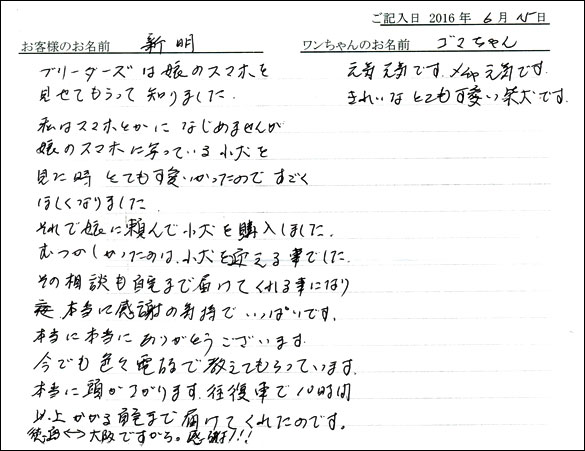 ご記入日 2016年 6月 15日
お客様のお名前 新明
ワンちゃんのお名前 ゴマちゃん
ブリーダーズは娘のスマホを
見せてもらって知りました.
私はスマホとかに なじめませんが
娘のスマホに写っている小犬を
見た時 とても可愛いかったので すごく
ほしくなりました
それで娘に頼んで小犬を購入しました.
むつかしかったのは、小犬を迎える事でした.
その相談も自宅まで届けてくれる事になり
本当に感謝の気持で いっぱいです.
本当に本当に ありがとうございます
今でも 色々電話で教えてもらっています.
本当に頭がさがります. 往復車で10時間
以上かかる自宅まで届けてくれたのです。
徳島↔大阪ですから。感謝!!!
元気元気です. メチャ元気です.
きれいな とても可愛い柴犬です.